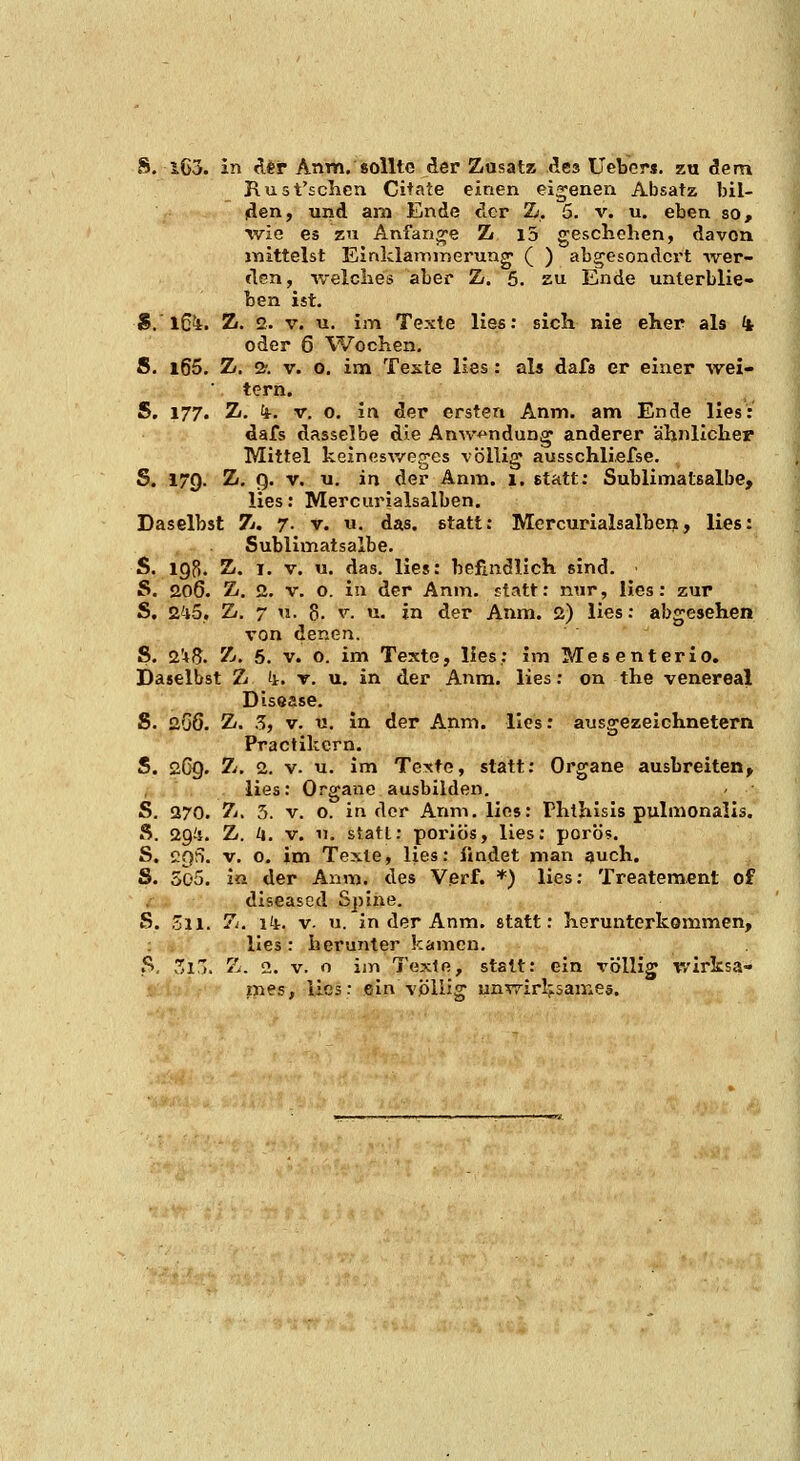 S. 163. in der Anm. sollte der Zusatz des Uebers. zu dem
Rust'schen Citate einen eigenen Absatz bil-
den, und am Ende der Z. 5. v. u. eben so,
wie es zu Anfange Z 15 geschehen, davon
mittelst Einklammerung ( ) abgesondert wer-
den, welches aber Z. 5. zu Ende unterblie-
ben ist.
S. 164. Z. 2. v. u. im Texte lies: sich nie eher als 4
oder 6 Wochen.
S. 165. Z. 2. v. o. im Texte lies: als dafs er einer wei-
tern.
S. 177. Z. 4. v. o. in der ersten Anm. am Ende lies:
dafs dasselbe die Anwendung anderer ähnlicher
Mittel keinesweges völlig ausschliefse.
S. 179. Z. 9. v. u. in der Anm. 1. statt: Sublimatsalbe,
lies: Mercurialsalben.
Daselbst Z. 7. v. u. das. statt: Mercurialsalben, lies:
Sublimatsalbe.
S. 198. Z. 1. v. u. das. lies: befindlich sind.
S. 206. Z. 2. v. o. in der Anm. statt: nur, lies: zur
S. 245. Z. 7 u. 8. v. u. in der Anm. 2) lies: abgesehen
von denen.
S. 248. Z. 5. v. o. im Texte, lies: im Mesenterio.
Daselbst Z 4. v. u. in der Anm. lies: on the venereal
Disease.
S. 266. Z. 3, v. u. in der Anm. lies: ausgezeichnetern
Practikern.
S. 269. Z. 2. v. u. im Texte, statt: Organe ausbreiten,
lies: Organe ausbilden.
S. 270. Z. 3. v. o. in der Anm. lies: Phthisis pulmonalis.
S. 294. Z. 4. v. u. statt: poriös, lies: porös.
S. 298. v. o. im Texte, lies: findet man auch.
S. 305. in der Anm. des Verf. *) lies: Treatement of
diseased Spine.
S. 311. Z. 14. v. u. in der Anm. statt: herunterkommen,
lies: herunter kamen.
S. 313. Z. 2. v. o im Texte, statt: ein völlig wirksa-
mes, lies: ein völlig unwirksames.